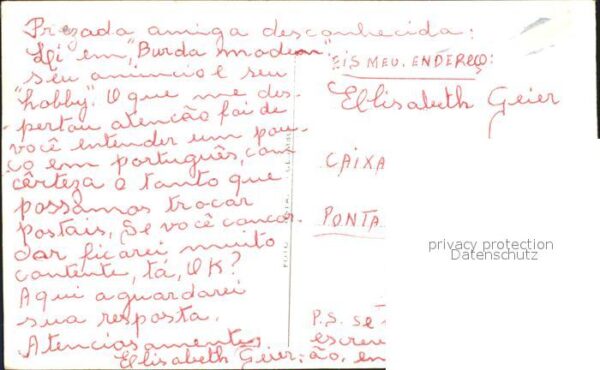 Prezada amiga desconhecida:
Li em "Burda modern"
seu anúncio e seu
"hobby". O que me des-
-pertou atenção foi de
você entender um pou-
ço em português, com
cêrteza o tanto que
possamos trocar
postais, Se você concor.
dar ficarei muito
contente, tá, OK?
Aqui aguardarei
sua resposta.
Atenciosamentes
Ellisabeth Geier:
EIS MEU. ENDEREÇO:
Ellisabeth Geier
CAIXA
PONTA
P.S. se
escrev
ão, en
privacy protection
Datenschutz